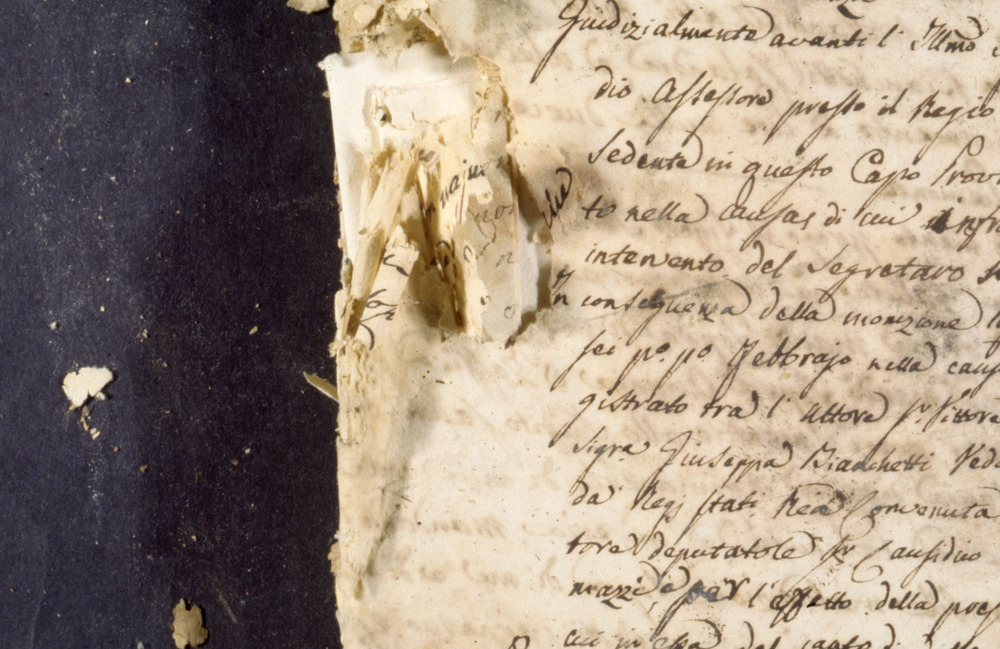 Giudizialmente avanti l' Illmo
dio Assessore presso il Regio
Sedente in questo Capo Prov
to nella causas di cui infr
intervento del Segretaro
In conseguenza della monizione
sei po. po Febbrajo nella caus
gistrato tra l' Attore Sr. Vittore
Sigra Giuseppa Bianchetti Ved
da Regj stati Rea Convenuta
tore deputatole Sr Causidico
mazzi, e per l' effetto della pres
cui in essa del canto di
che